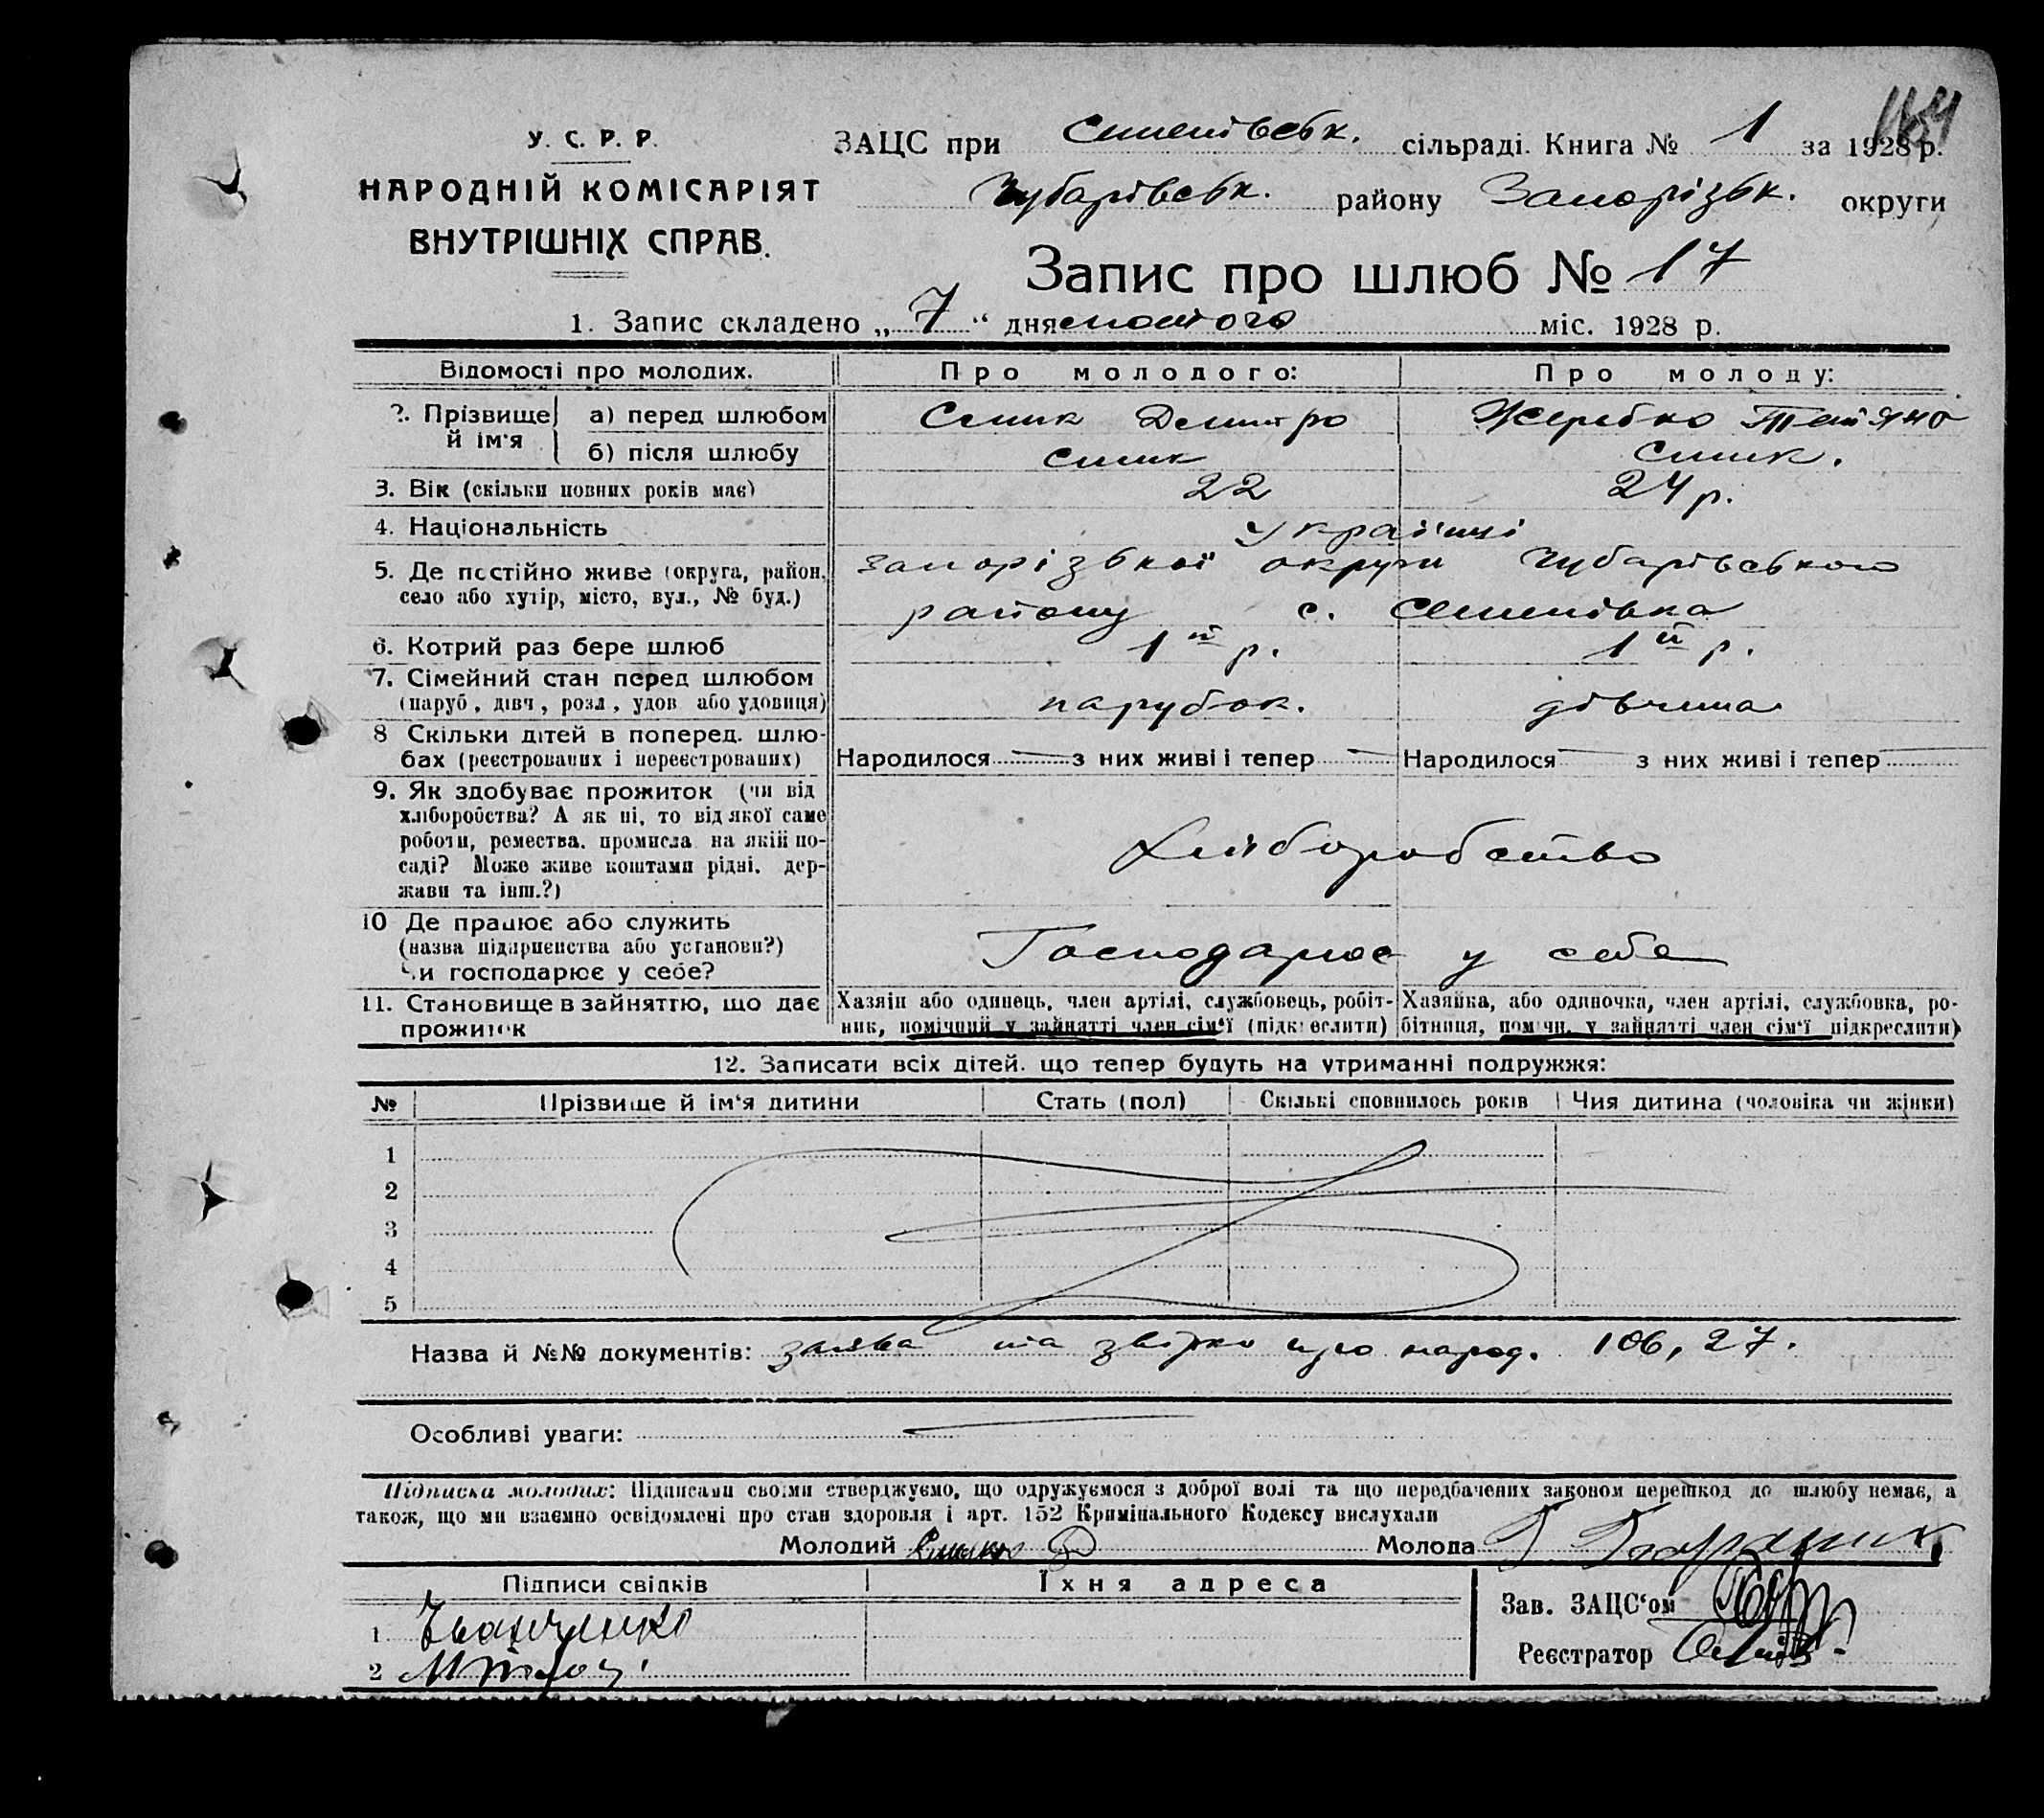 У. С. Р. Р.
НАРОДНІЙ КОМІСАРІЯТ
ВНУТРІШНІХ СПРАВ.
ЗАЦС при Семенівськ. сільраді. Книга № 1 за 1928 р.
Чубарівськ. району Запорізьк. округи
Запис про шлюб № 17
1. Запис складено „ 7 “ дня лютого міс. 1928 р.
Відомості про молодих. Про молодого: Про молоду:
2. Прізвище й ім‘я
а) перед шлюбом Демитро Жеребко
б) після шлюбу
3. Вік (скільки повних років має) 22 24 р.
4. Національність Українці
5. Де постійно живе (округа, район, село або хутір, місто, вул., № буд.)
Запорізької округи Чубарівського
району с. Семенівка
6. Котрий раз бере шлюб 1й р. 1й р.
7. Сімейний стан перед шлюбом
(паруб., дівч., розл., удов. або удовиця) парубок. дівчина
8 Скільки дітей в поперед. шлю-
бах (реєстрованих і нереєстрованих) Народилося з них живі і тепер Народилося з них живі і тепер
9. Як здобуває прожиток (чи від
хліборобства? А як ні, то від якої саме
роботи, ремества, промисла на якій по-
саді? Може живе коштами рідні, дер-
жави та інш.?)
Хліборобство
10 Де працює або служить
(назва підприємства або установи?)
Чи господарює у себе?
Господарює у себе
11. Становище в зайняттю, що дає
прожиток
Хазяїн або одинець, член артілі, службовець, робіт-
ник, помічний у зайнятті член сім‘ї (підкреслити)
Хазяйка, або одиночка, член артілі, службовка, ро-
бітниця, помічн. у зайнятті член сім‘ї підкреслити)
12. Записати всіх дітей, що тепер будуть на утриманні подружжя:
№ Прізвище й ім‘я дитини Стать (пол) Скількі сповнилось років Чия дитина (чоловіка чи жінки)
1
2
3
4
5
Назва й №№ документів: заява та про народ. 106, 27.
Особливі уваги:
Підписка молодих: Підписами своїми стверджуємо, що одружуємося з доброї волі та що передбачених законом перешкод до шлюбу немає, а
також, що ми взаємно освідомлені про стан здоровля і арт. 152 Кримінального Кодексу вислухали
Молодий Молода
Підписи свідків Їхня адреса
Зав. ЗАЦС‘ом
1 Іванченко
Реєстратор
2